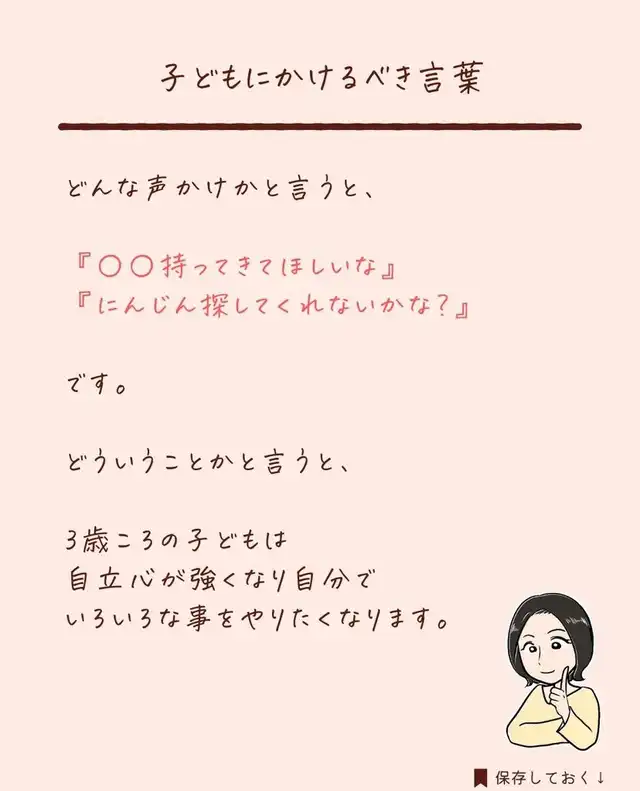 子どもにかけるべき言葉
どんな声かけかと言うと、
『〇〇持ってきてほしいな』
『にんじん探してくれないかな?』
です。
どういうことかと言うと、
3歳ころの子どもは
自立心が強くなり自分で
いろいろな事をやりたくなります。
保存しておく↓